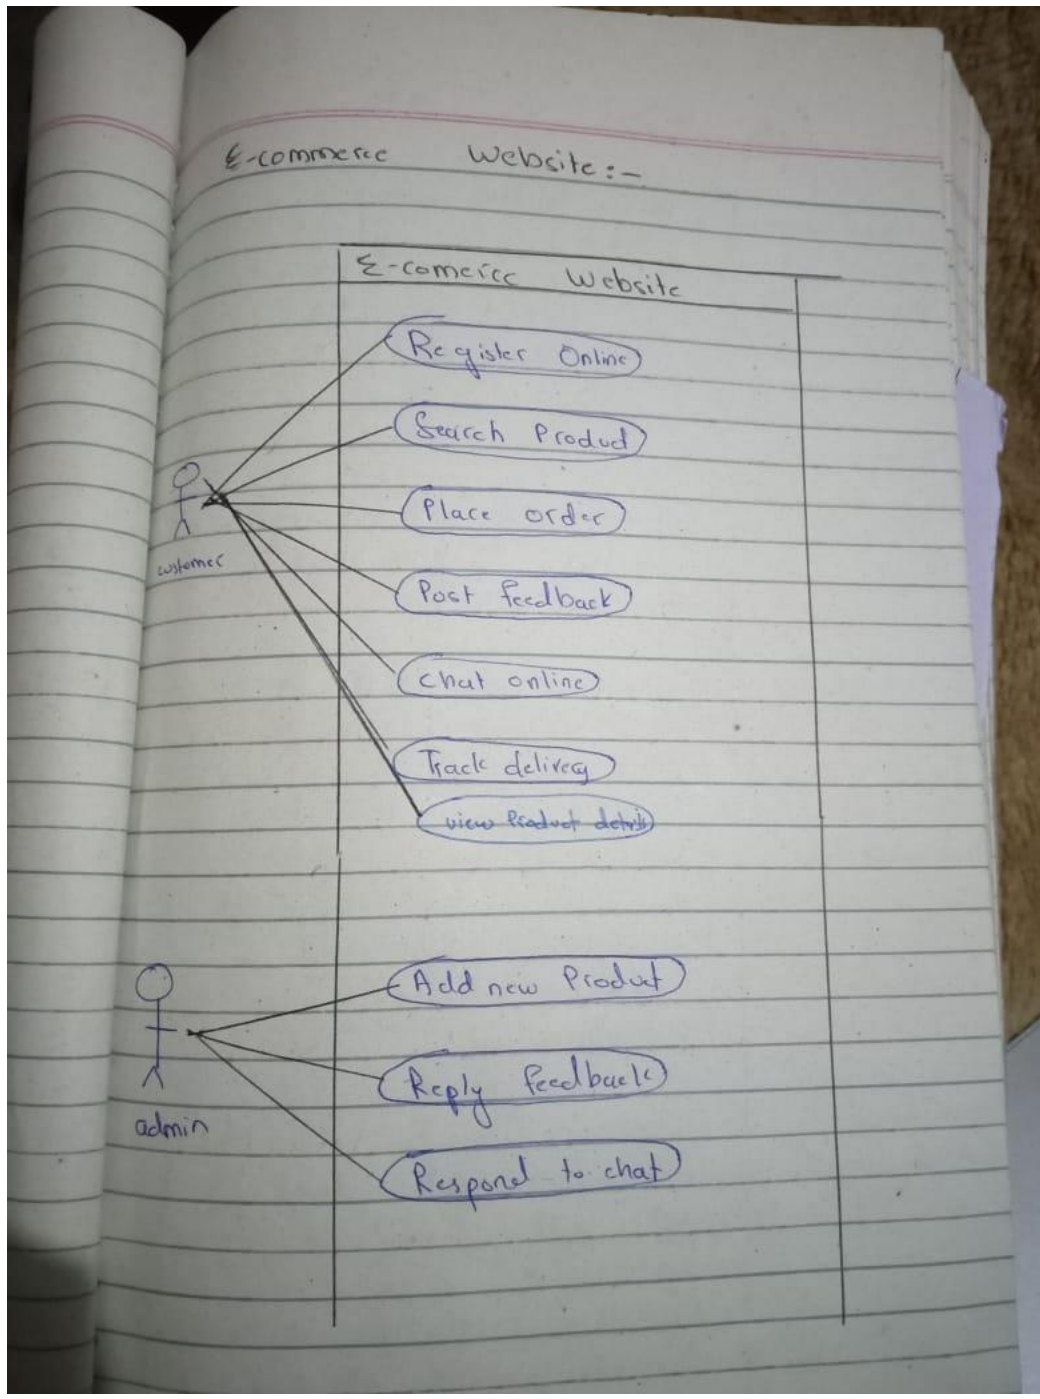 E-commerce Website:-
E-comerce Website
Register Online
Search Product
Place order
customer
Post feedback
Chat online
Track delivery
view Product details
Add new Product
Reply feedback
admin
Respond to chat